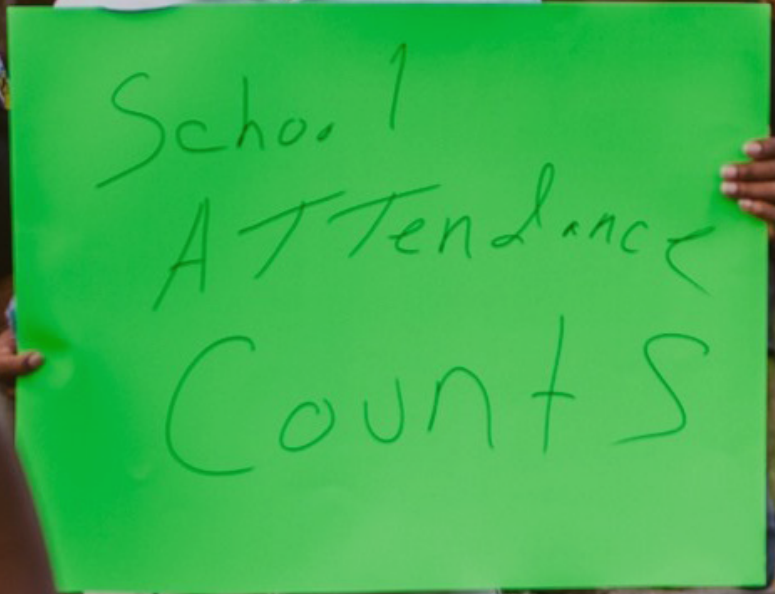 School
ATTendance
Counts